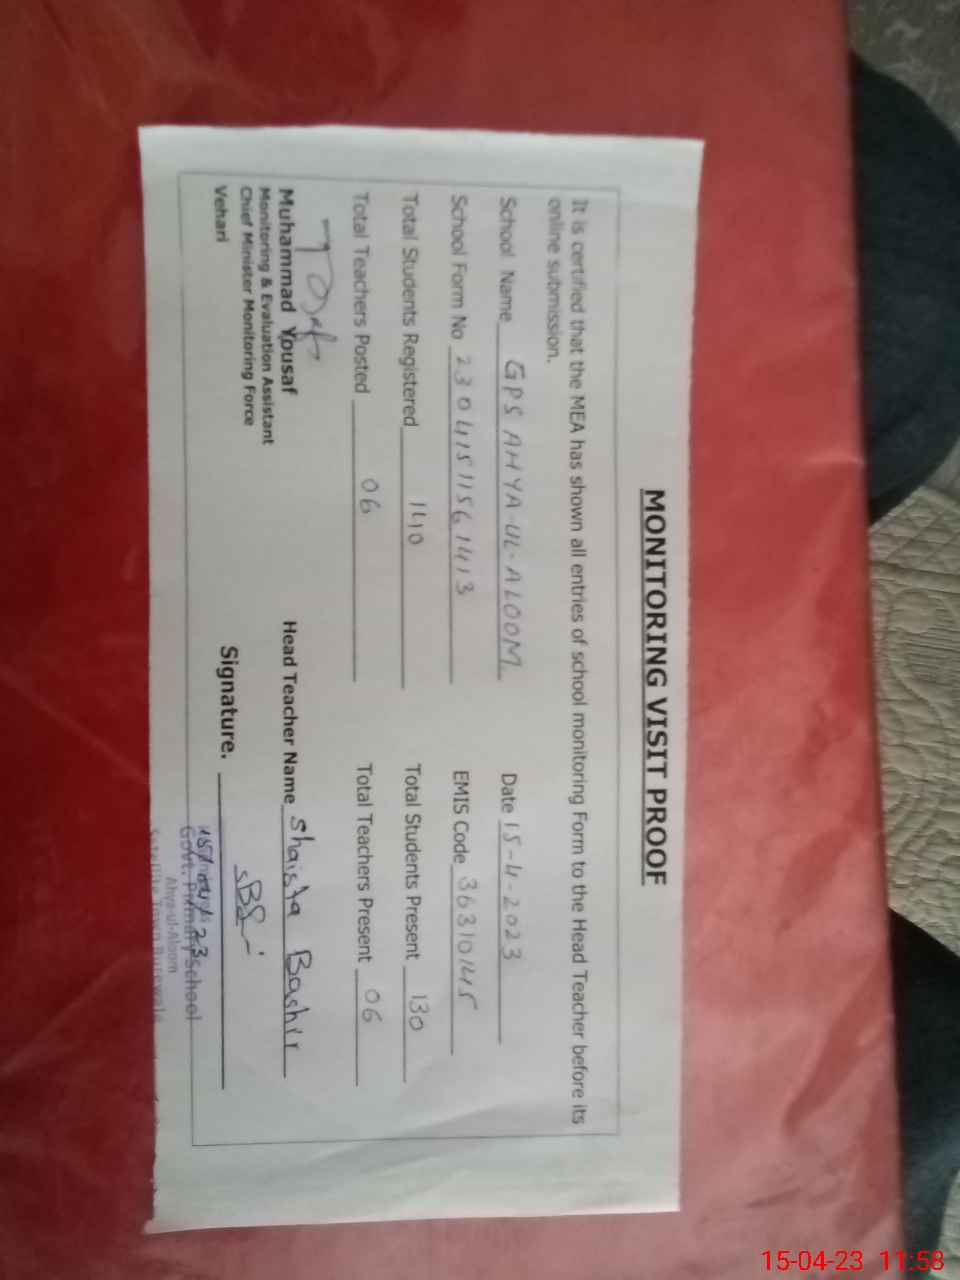 MONITORING VISIT PROOF
It is certified that the MEA has shown all entries of school monitoring Form to the Head Teacher before its
online submission.
School Name GPS AHYA-UL-ALOOM Date 15-4-2023
School Form No 23041511561413 EMIS Code 36310145
Total Students Registered 140 Total Students Present 130
Total Teachers Posted 06 Total Teachers Present 06
Muhammad Yousaf
Monitoring & Evaluation Assistant
Chief Minister Monitoring Force
Vehari
Head Teacher Name Shaista Bashir
Signature.
Govt. Primary School
Ahya-ul-Aloom
Satellite Town Burewala
15-04-23 11:58